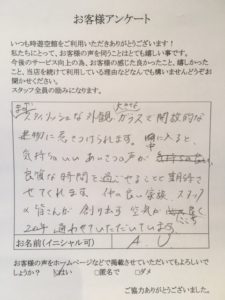 お客様アンケート
いつも時遊空館をご利用いただきありがとうございます!
私たちにとって、お客様の声を伺うことはとても嬉しい事です。
今後のサービス向上の為、お客様の感じた良かったこと、嬉しかった
こと、当店を続けて利用している理由などなんでも構いませんどうぞお
聞かせください。
スタッフ全員の励みになります。
まず 大きな
スタイリッシュな外観、ガラスで開放的な
建物に惹きつけられます。中に入ると、
気持ちのいいあいさつの声が
良質な時間を過ごせることを期待さ
せてくれます。仲の良い家族、スタッフ
の皆さんが創り出す空気が
20年通わせていただいています。
お名前(イニシャル可) A.U
お客様の声をホームページなどで掲載させていただいてもよろしいで
しょうか? □はい □匿名で □ダメ
ご協力ありがとうございました。